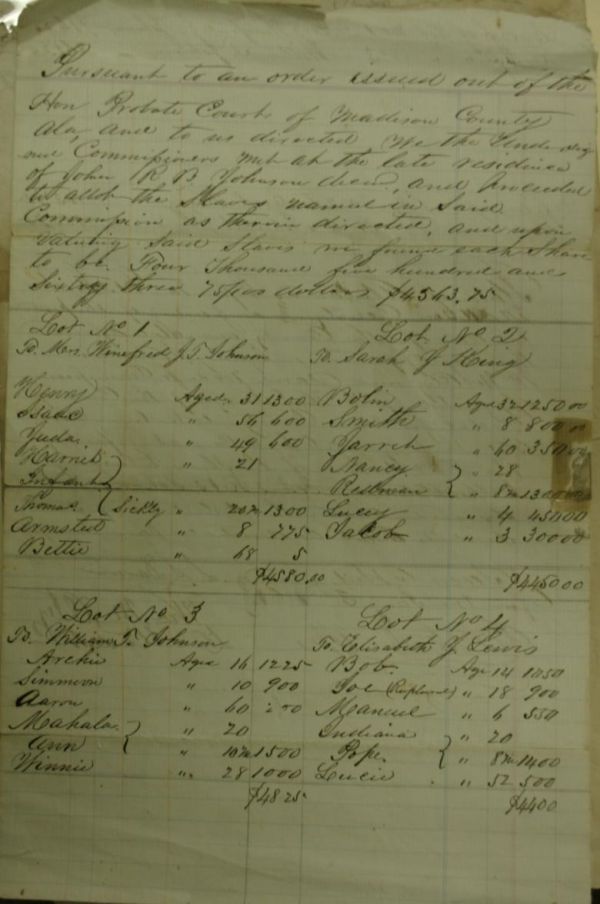 Pursuant to an order issued out of the
Hon Probate Court of Madison County
Ala, and to us directed We the Undersig
ned Commissioners met at the late residence
of John R B Johnson decd, and Proceeded
to allot the Slaves named in Said
Commission as therein directed, and upon
Valuing Said Slaves we found each Share
to be Four Thousand five hundred and
Sixty three 75/100 dollars $4563.75
Lot No 1
To Mrs. Winefred J. T. Johnson
Henry Aged 31 1300
Isaac " 56 600
Juda " 49 600
Harriet " 21
Infant
Thomas Sickly " 1300
Armsted " 8 775
Bettie " 68 5
$4580.00
Lot No 2
To Sarah J King
Bolin Age 37 1250 00
Smith " 8 800 00
Jarret " 60 350 00
Nancy " 28
Redman " 8m 1300 00
Lucy " 4 450 00
Jacob " 3 300 00
$4450 00
Lot No 3
To William T. Johnson
Archie Aged 16 1225
Simmeon " 10 900
Aaron " 60
Mahala " 20
Ann " 10m 1500
Winnie " 28 1000
$4825
Lot No 4
To Elisabeth J Lewis
Bob. Age 14 1050
Joe " 18 900
Manuel " 6 550
Indiana " 20
Pope. " 8m 1400
Lucie " 52 500
$4400